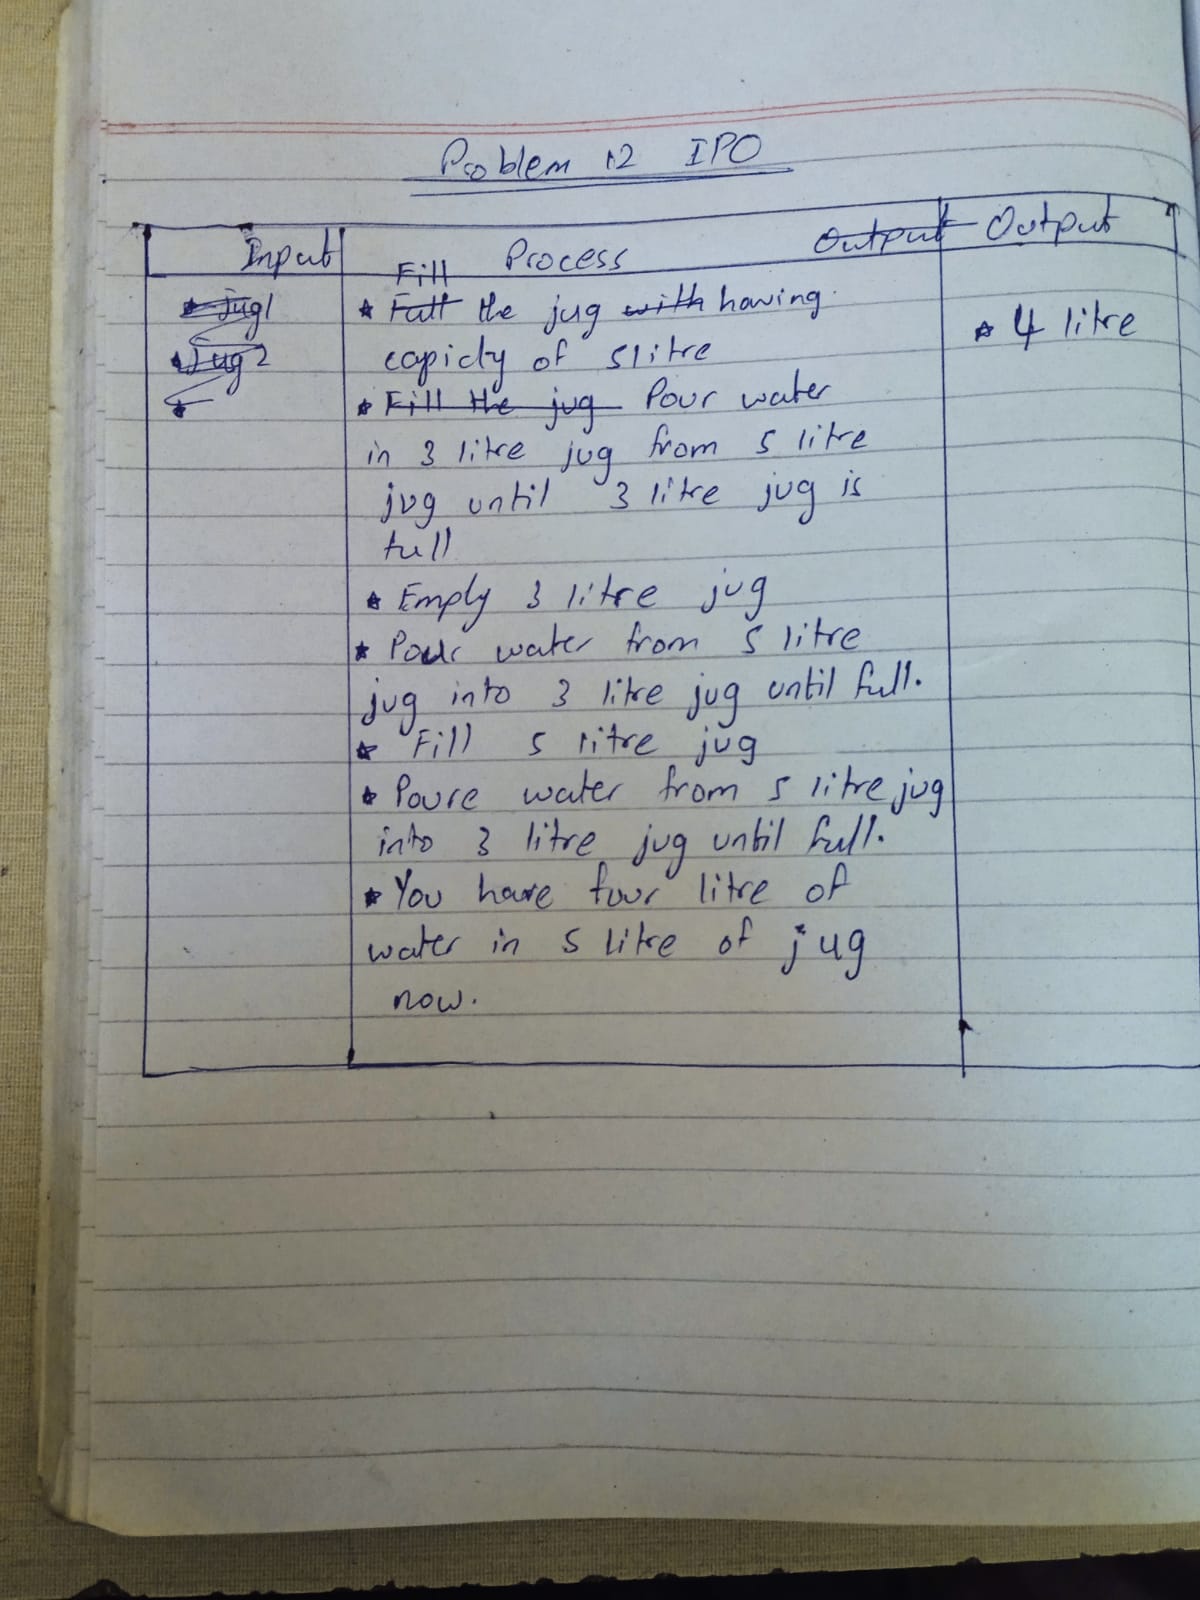 Problem 12 IPO
Input Process Output Output
Fill
jug1
Jug2
Full the jug with having
capicty of 5litre
Fill the jug Pour water
in 3 litre jug from 5 litre
jug until 3 litre jug is
full
Emply 3 litre jug
Pour water from 5 litre
jug into 3 litre jug until full.
Fill 5 litre jug
Poure water from 5 litre jug
into 3 litre jug until full.
You have four litre of
water in 5 litre of jug
now.
4 litre